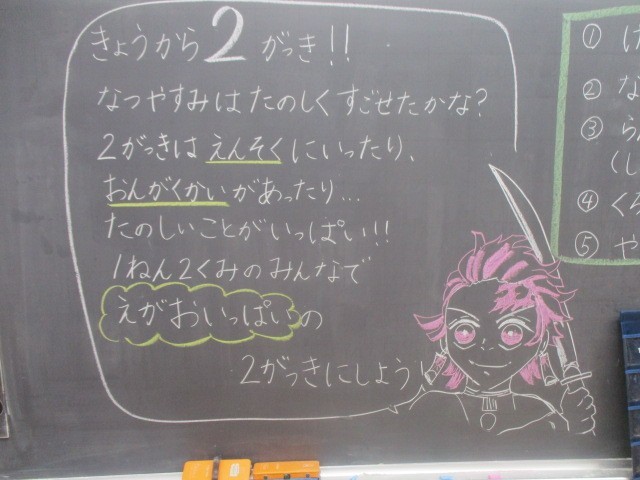 きょうから2がっき!!
なつやすみはたのしくすごせたかな?
2がっきはえんそくにいったり、
おんがくかいがあったり...
たのしいことがいっぱい!!
1ねん2くみのみんなで
えがおいっぱいの
2がっきにしよう!
①
② な
③ ら
(し
④ く
⑤ や